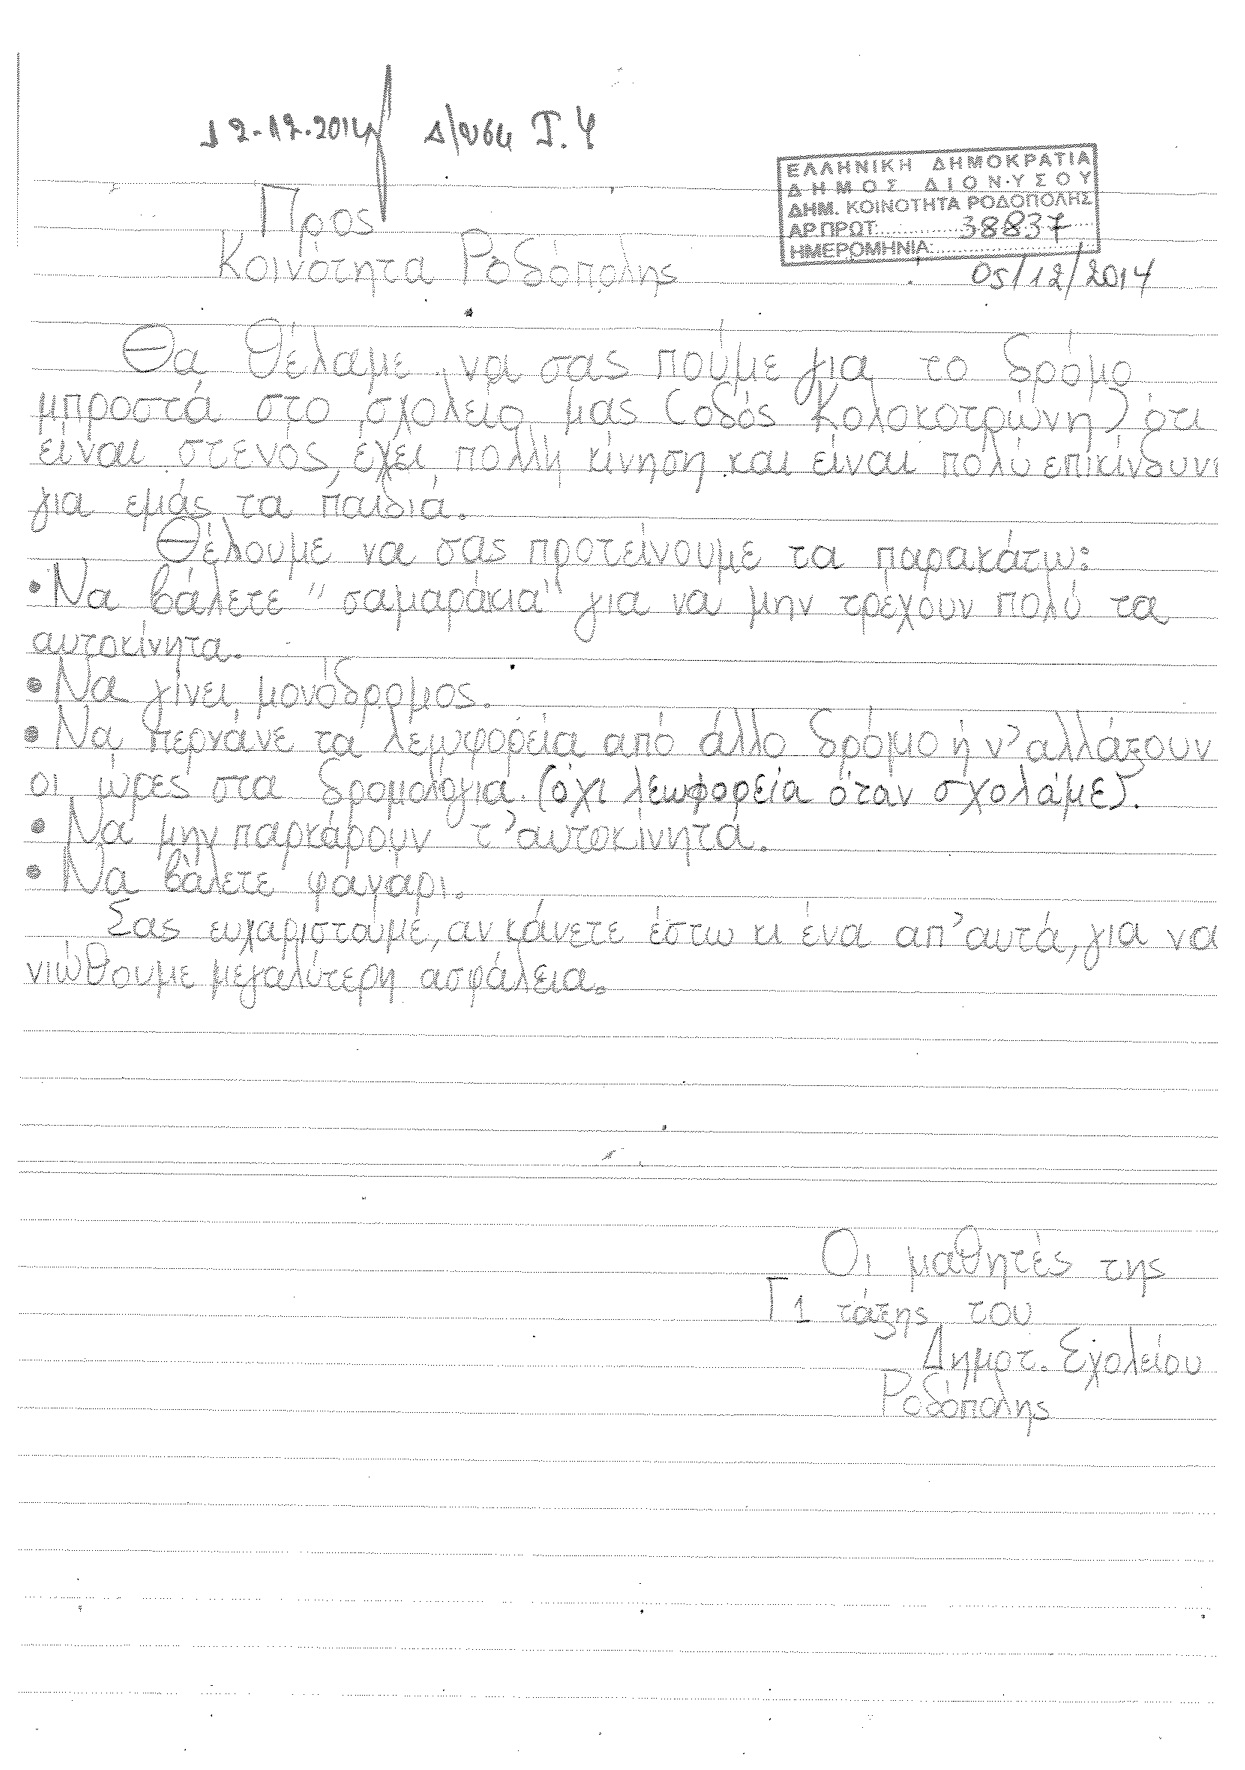 12-12-2014 Δ/νση Τ.Υ
ΕΛΛΗΝΙΚΗ ΔΗΜΟΚΡΑΤΙΑ
ΔΗΜΟΣ ΔΙΟΝΥΣΟΥ
ΔΗΜ. ΚΟΙΝΟΤΗΤΑ ΡΟΔΟΠΟΛΗΣ
ΑΡ.ΠΡΩΤ: 38837
ΗΜΕΡΟΜΗΝΙΑ:
05/12/2014
Προς
Κοινότητα Ροδόπολης
Θα θέλαμε να σας πούμε για το δρόμο
μπροστά στο σχολείο μας (οδός Κολοκοτρώνη) ότι
είναι στενός, έχει πολλή κίνηση και είναι πολύ επικίνδυνο
για εμάς τα παιδιά.
Θέλουμε να σας προτείνουμε τα παρακάτω:
• Να βάλετε "σαμαράκια" για να μην τρέχουν πολύ τα
αυτοκίνητα.
• Να γίνει μονόδρομος.
• Να περνάνε τα λεωφορεία από άλλο δρόμο ή ν' αλλάξουν
οι ώρες στα δρομολόγια. (όχι λεωφορεία όταν σχολάμε).
• Να μην παρκάρουν τ' αυτοκίνητα.
• Να βάλετε φανάρι.
Σας ευχαριστούμε, αν κάνετε έστω κι ένα απ' αυτά, για να
νιώθουμε μεγαλύτερη ασφάλεια.
Οι μαθητές της
Γ1 τάξης του
Δημοτ. Σχολείου
Ροδόπολης